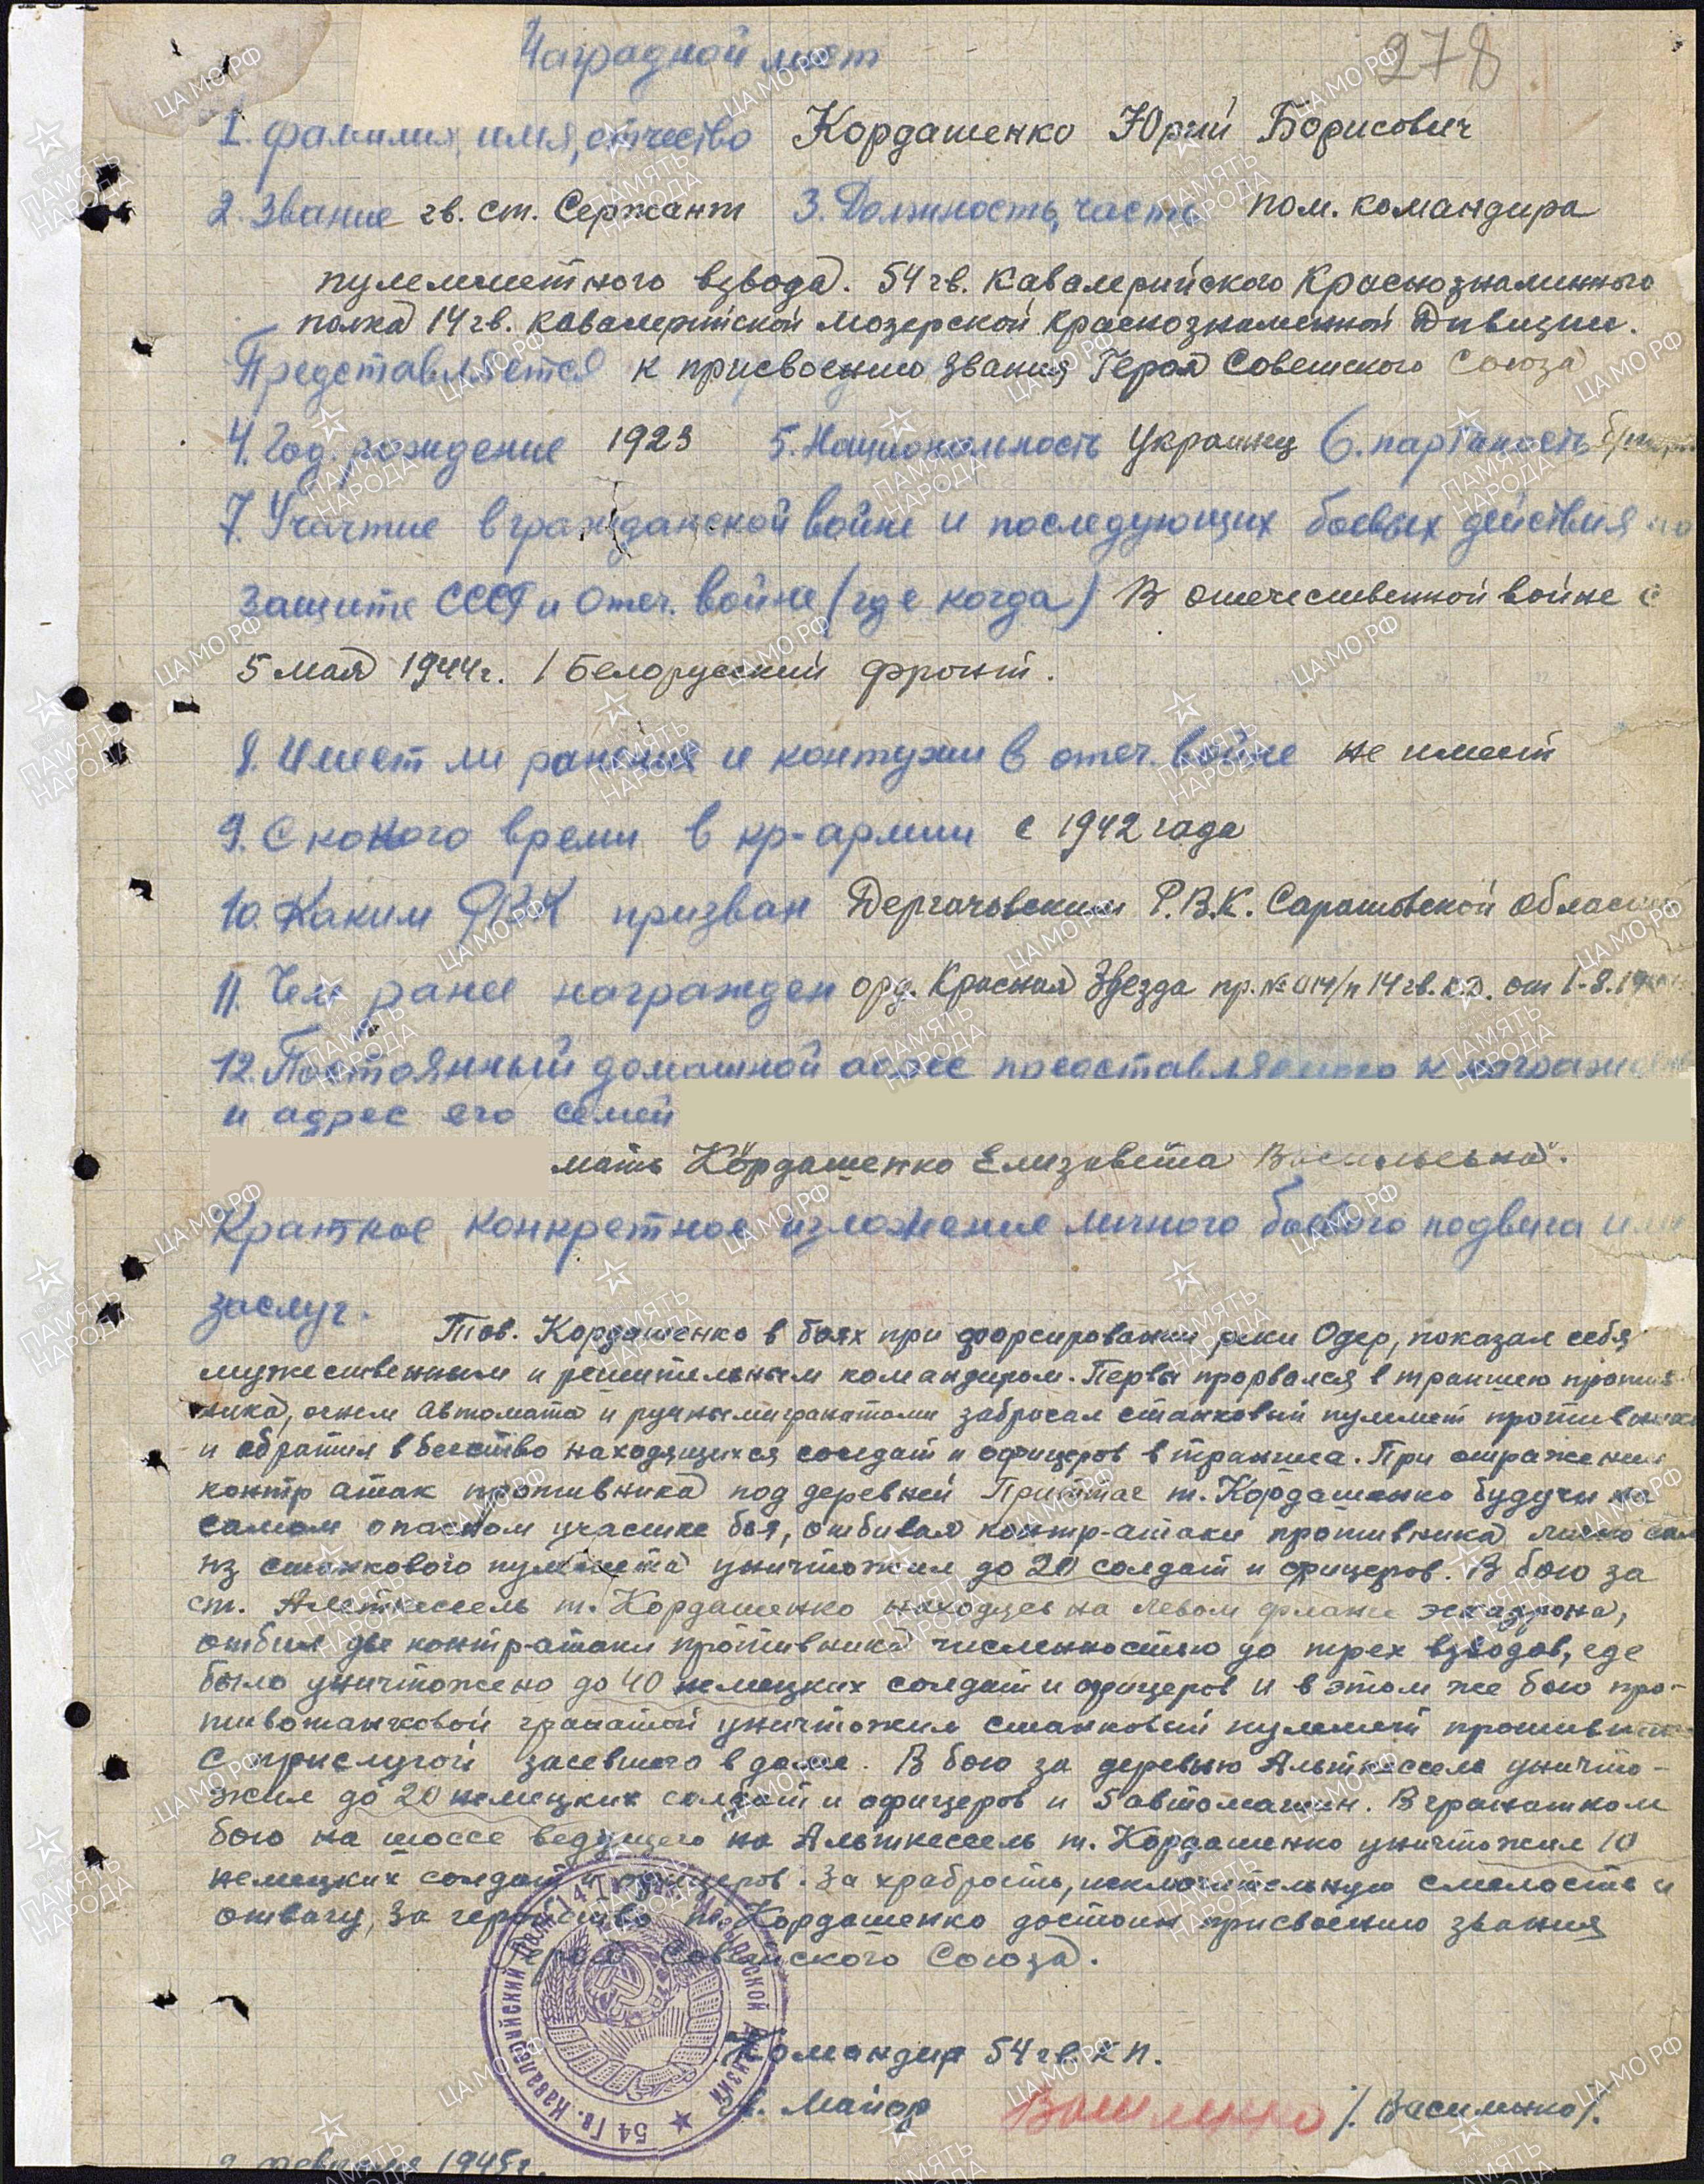 Наградной лист
278
1. Фамилия, имя, отчество Кордашенко Юрий Борисович
2. Звание гв. ст. Сержант 3. Должность, часть пом. командира
пулеметного взвода. 54 гв. Кавалерийского Краснознаминного
полка 14 гв. кавалерийской мозерской краснознаменной Дивизии.
Представляется к присвоению звания Героя Советского Союза
4. Год. рождение 1923 5. Национальность украинец 6. партийность
7. Участие в гражданской войне и последующих боевых действия по
защите СССР и Отеч. войне (где когда) В отечественной войне с
5 мая 1944г. 1 Белоруский фронт.
8. Имеет ли ранения и контузии в отеч. войне не имеет
9. С какого время в кр-армии с 1942 года
10. Каким РВК призван Дергачёвским Р.В.К. Саратовской области
11. Чем ранее награжден орд. Красная Звезда пр. № 014/н 14 гв. к.д. от 1-8.19
12. Постоянный домашной адрес представляемого к награжден
и адрес его семей
мать Кордашенко Елизавета Васильевна.
Краткое конкретное изложение личного боевого подвига или
заслуг.
Тов. Кордашенко в боях при форсировании реки Одер, показал себя
мужественным и решительным командиром. Первы прорвался в траншею против-
ника, огнем автомата и ручными гранатами забросал станковый пулемет противника
и обратил в бегство находящихся солдат и офицеров в траншеа. При отражении
контр атак противника под деревней т. Кордашенко будучи на
самом опасном участке боя, отбивая контр-атаки противника лично сам
из станкового пулемета уничтожил до 20 солдат и офицеров. В бою за
ст. Альткессель т. Кордашенко находясь на левом фланге эскадрона,
отбил две контратаки противника численностью до трех взводов, где
было уничтожено до 40 немецких солдат и офицеров и в этом же бою про-
тивотанковой гранатой уничтожил станковый пулемет противника
с прислугой засевшего в доме. В бою за деревню Альткессель уничто-
жил до 20 немецких солдат и офицеров и 5 автомашин. В гранатном
бою на шоссе ведущего на Альткессель т. Кордашенко уничтожил 10
немецких солдат и офицеров. За храбрость, исключительную смелость и
отвагу, за геройство т. Кордашенко достоин присвоению звания
Героя Советского Союза.
Командир 54 гв. КП.
гв. Майор /. Василенко/.
февраля 1945г.